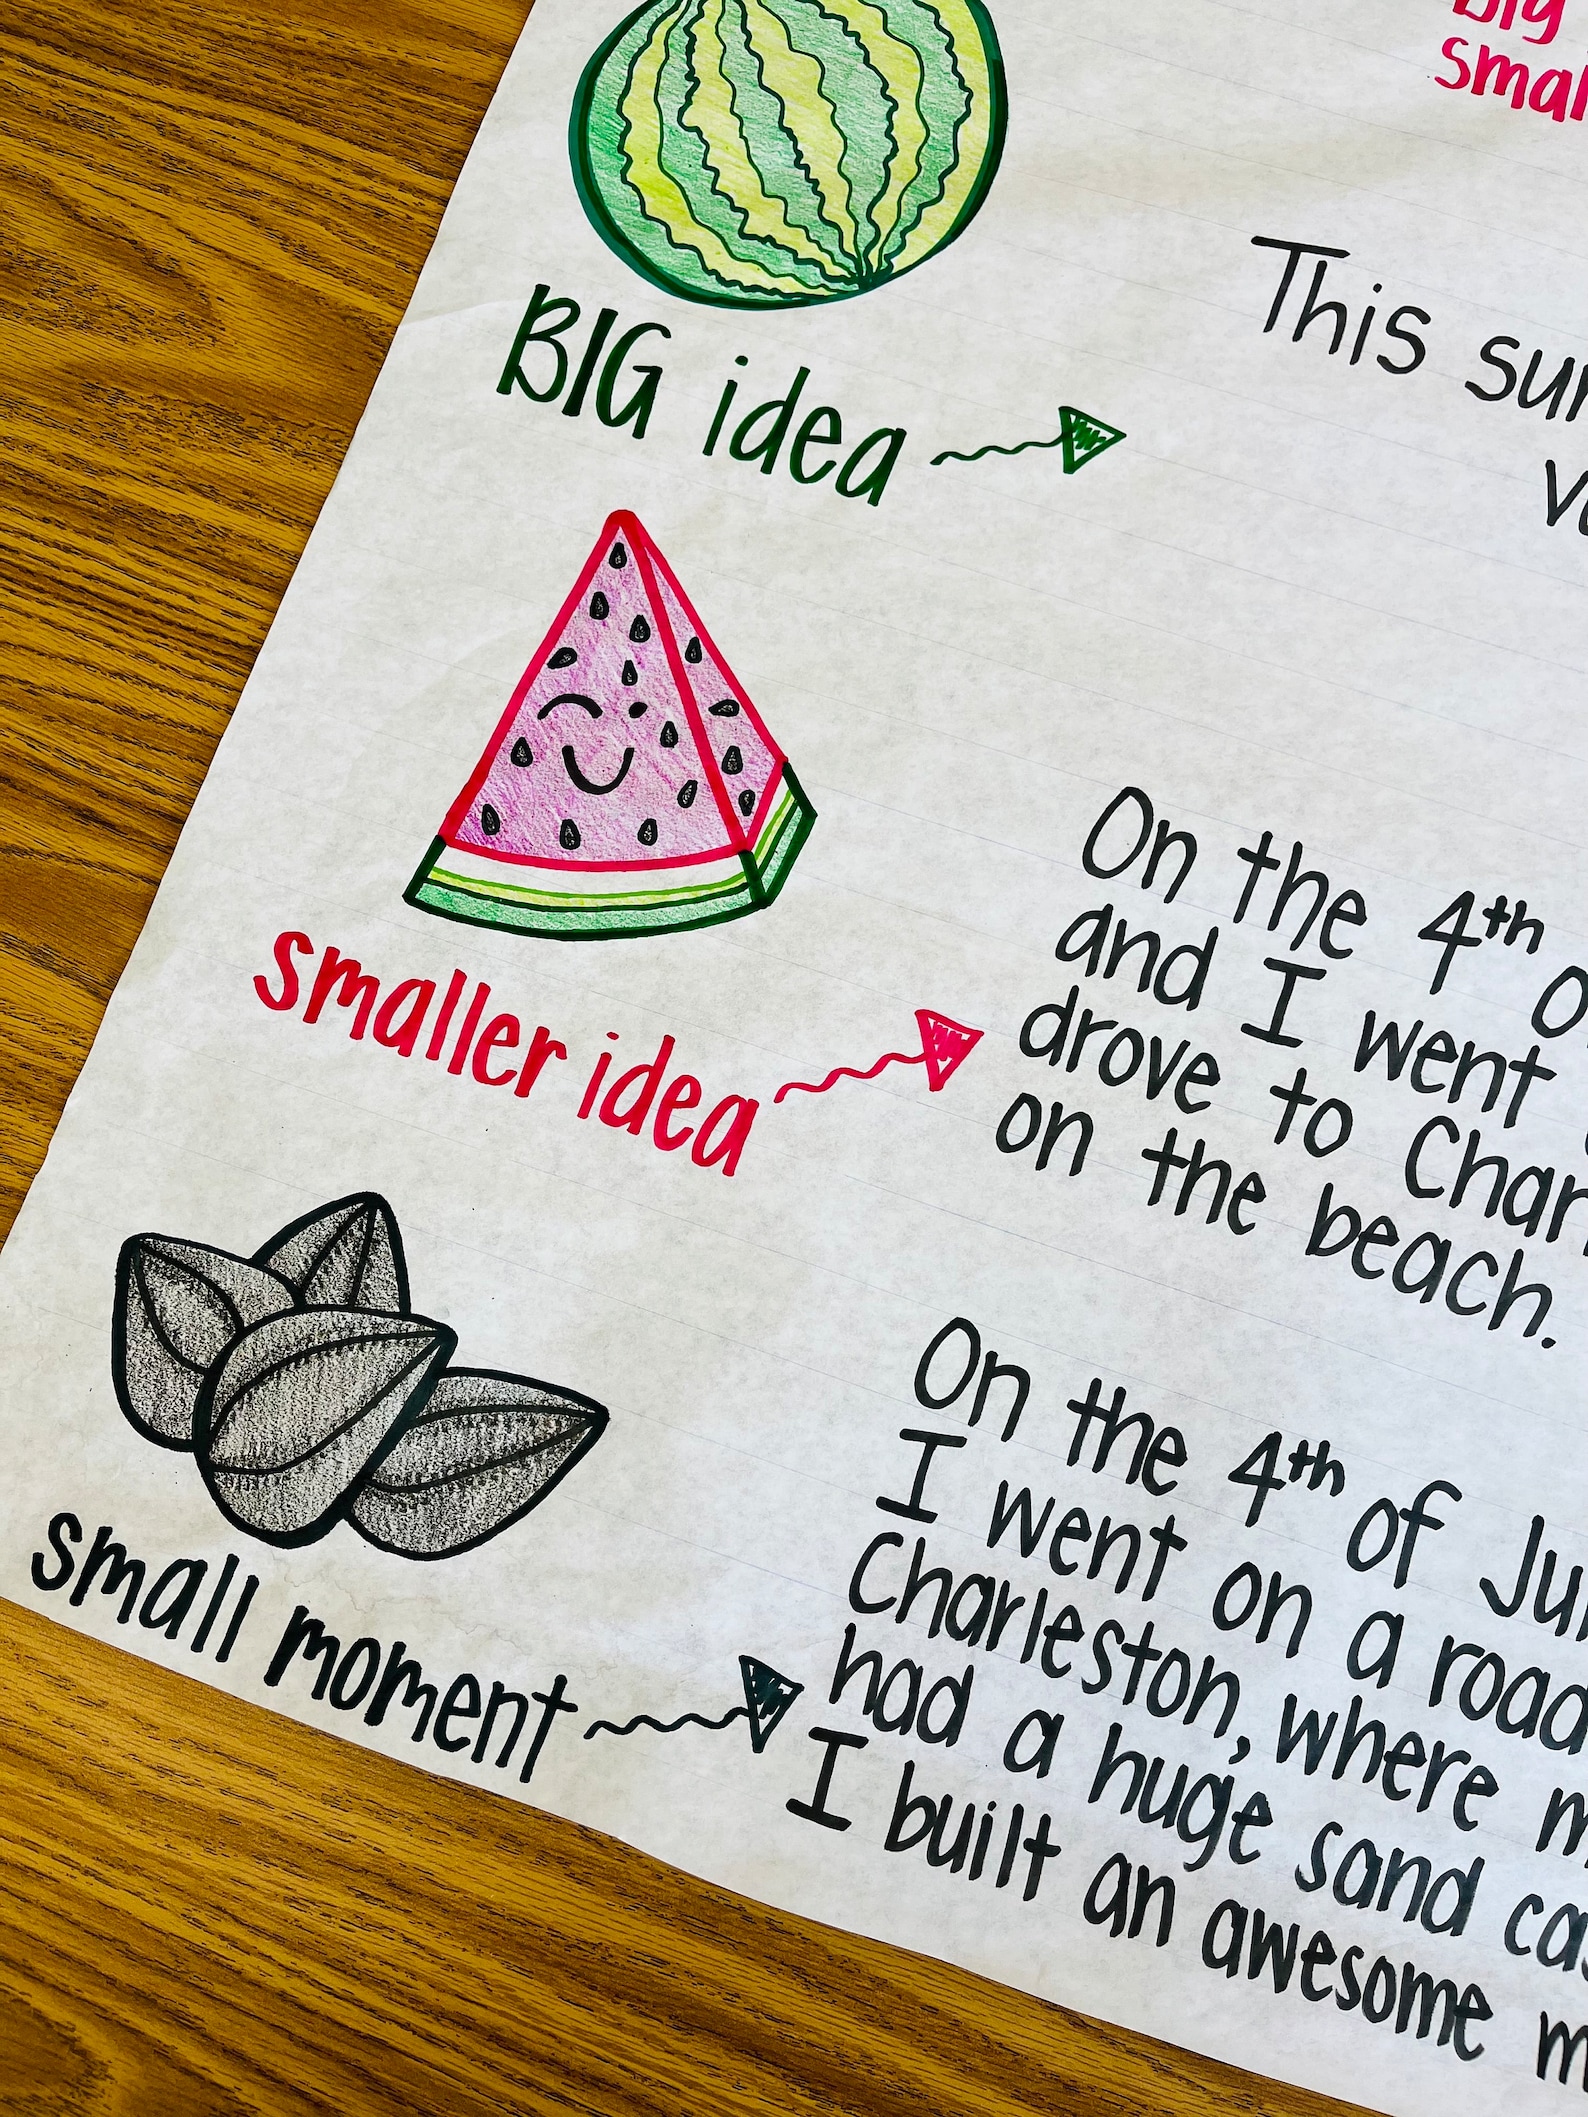 Big
Small
BIG idea
This
smaller idea
On the 4th
and I went
drove to
on the beach.
small moment
On the 4th of
I went on a road
Charleston, where
had a huge sand
I built an awesome